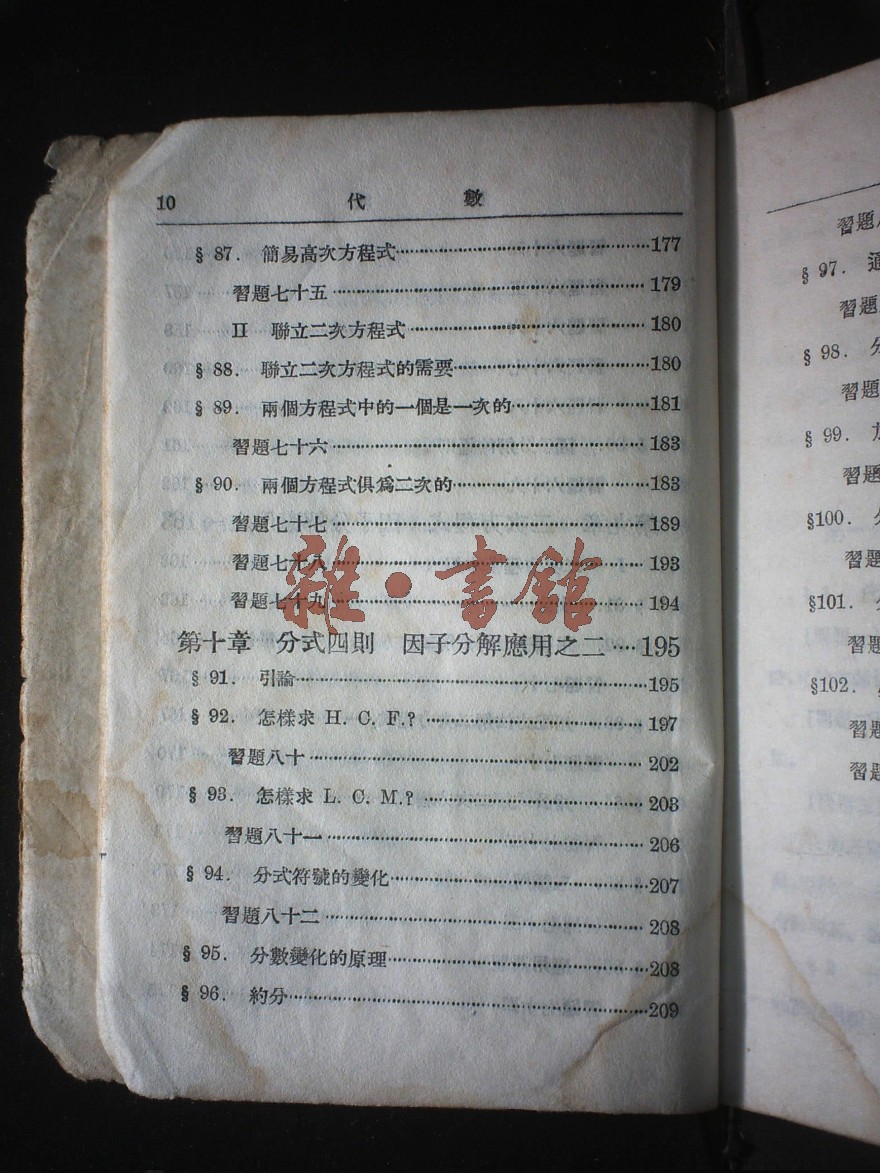 10 代 數
§ 87. 簡易高次方程式……177
習題七十五……179
II 聯立二次方程式……180
§ 88. 聯立二次方程式的需要……180
§ 89. 兩個方程式中的一個是一次的……181
習題七十六……183
§ 90. 兩個方程式俱爲二次的……183
習題七十七……189
習題七十八……193
習題七十九……194
雜·書館
第十章 分式四則 因子分解應用之二……195
§ 91. 引論……195
§ 92. 怎樣求 H. C. F.?……197
習題八十……202
§ 93. 怎樣求 L. C. M.?……203
習題八十一……206
§ 94. 分式符號的變化……207
習題八十二……208
§ 95. 分數變化的原理……208
§ 96. 約分……209
習題
§ 97. 通
習題
§ 98. 分
習題
§ 99.
習題
§100. 分
習題
§101. 分
習題
§102.
習題
習題